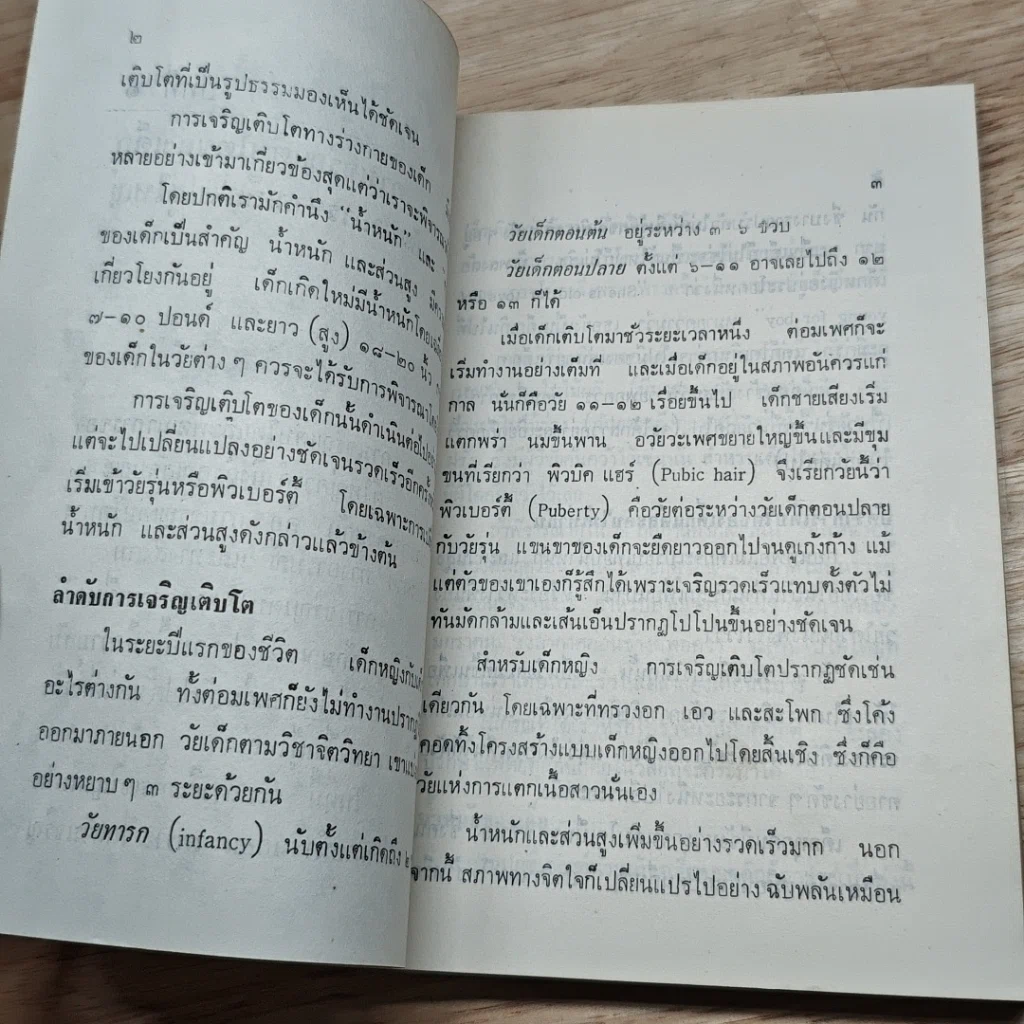 ๒
เติบโตที่เป็นรูปธรรมมองเห็นได้ชัดเจน
การเจริญเติบโตทางร่างกายของเด็ก
หลายอย่างเข้ามาเกี่ยวข้องสุดแต่ว่าเราจะพิจารณ
โดยปกติเรามักคำนึง "น้ำหนัก" และ
ของเด็กเป็นสำคัญ น้ำหนัก และส่วนสูง
เกี่ยวโยงกันอยู่ เด็กเกิดใหม่มีน้ำหนักโดย
๗–๑๐ ปอนด์ และยาว (สูง) ๑๘–๒๐ นิ้ว
ของเด็กในวัยต่าง ๆ ควรจะได้รับการพิจารณา
การเจริญเติบโตของเด็กนั้นดำเนินต่อไป
แต่จะไปเปลี่ยนแปลงอย่างชัดเจนรวดเร็วอีก
เริ่มเข้าวัยรุ่นหรือพิวเบอร์ตี้ โดยเฉพาะการ
น้ำหนัก และส่วนสูงดังกล่าวแล้วข้างต้น
ลำดับการเจริญเติบโต
ในระยะปีแรกของชีวิต เด็กหญิงกับ
อะไรต่างกัน ทั้งต่อมเพศก็ยังไม่ทำงาน
ออกมาภายนอก วัยเด็กตามวิชาจิตวิทยา เขา
อย่างหยาบ ๆ ๓ ระยะด้วยกัน
วัยทารก (infancy) นับตั้งแต่เกิดถึง ๒
๓
วัยเด็กตอนต้น อยู่ระหว่าง ๓ ๖ ขวบ
วัยเด็กตอนปลาย ตั้งแต่ ๖–๑๑ อาจเลยไปถึง ๑๒
หรือ ๑๓ ก็ได้
เมื่อเด็กเติบโตมาชั่วระยะเวลาหนึ่ง ต่อมเพศก็จะ
เริ่มทำงานอย่างเต็มที่ และเมื่อเด็กอยู่ในสภาพอันควรแก่
กาล นั่นก็คือวัย ๑๑–๑๒ เรื่อยขึ้นไป เด็กชายเสียงเริ่ม
แตกพร่า นมขึ้นพาน อวัยวะเพศขยายใหญ่ขึ้นและมีขุม
ขนที่เรียกว่า พิวบิค แฮร์ (Pubic hair) จึงเรียกวัยนี้ว่า
พิวเบอร์ตี้ (Puberty) คือวัยต่อระหว่างวัยเด็กตอนปลาย
กับวัยรุ่น แขนขาของเด็กจะยืดยาวออกไปจนดูเก้งก้าง แม้
แต่ตัวของเขาเองก็รู้สึกได้เพราะเจริญรวดเร็วแทบตั้งตัวไม่
ทันมัดกล้ามและเส้นเอ็นปรากฏโปโปนขึ้นอย่างชัดเจน
สำหรับเด็กหญิง การเจริญเติบโตปรากฏชัดเช่น
เดียวกัน โดยเฉพาะที่ทรวงอก เอว และสะโพก ซึ่งโค้ง
คอดทิ้งโครงสร้างแบบเด็กหญิงออกไปโดยสิ้นเชิง ซึ่งก็คือ
วัยแห่งการแตกเนื้อสาวนั่นเอง
น้ำหนักและส่วนสูงเพิ่มขึ้นอย่างรวดเร็วมาก นอก
จากนี้ สภาพทางจิตใจก็เปลี่ยนแปรไปอย่าง ฉับพลันเหมือน